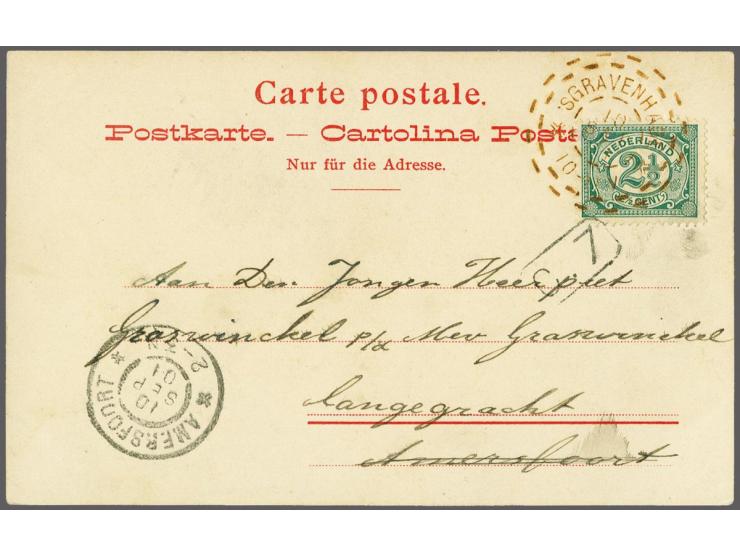 Carte postale.
Postkarte. — Cartolina Post
Nur für die Adresse.
SGRAVENH
NEDERLAND
2½
2½ CENT
7
Aan Den Jongen Heer piet
Graswinckel p/a Mev Graswinckel
Langegracht
Amersfoort
AMERSFOORT
10 SEP 01